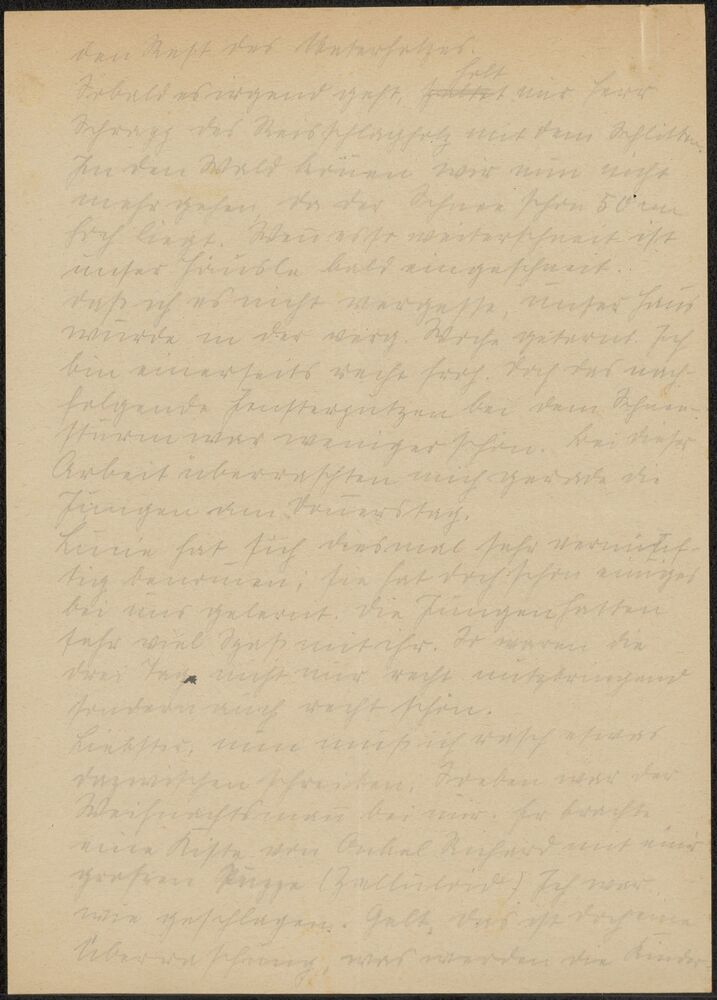 den Rest des Unterholzes.
Sobald es irgend geht, holt uns Herr
Schrapp das Reisschlagholz mit dem Schlitten.
In den Wald können wir nun nicht
mehr gehen, da der Schnee schon 50 cm
hoch liegt. Wenn es so weiterschneit ist
unser Häusle bald eingeschneit.
Daß ich es nicht vergesse, unser Haus
wurde in der verg. Woche getarnt. Ich
bin einerseits recht froh. Doch das nach-
folgende Fensterputzen bei dem Schnee-
sturm war weniger schön. Bei dieser
Arbeit überraschten mich gerade die
Jungen am Donnerstag.
hat sich diesmal sehr vernünf-
tig benommen; sie hat doch schon einiges
bei uns gelernt. Die Jungen hatten
sehr viel Spaß mit ihr. So waren die
drei Tage nicht nur recht nutzbringend
sondern auch recht schön.
Liebster, nun muß ich rasch etwas
dazwischen schreiben. Soeben war der
Weihnachtsmann bei mir. Er brachte
eine Kiste von Onkel Richard mit einer
großen Puppe (Zelluloid) Ich war
wie geschlagen. Gelt, das ist doch eine
Überraschung, was werden die Kinder